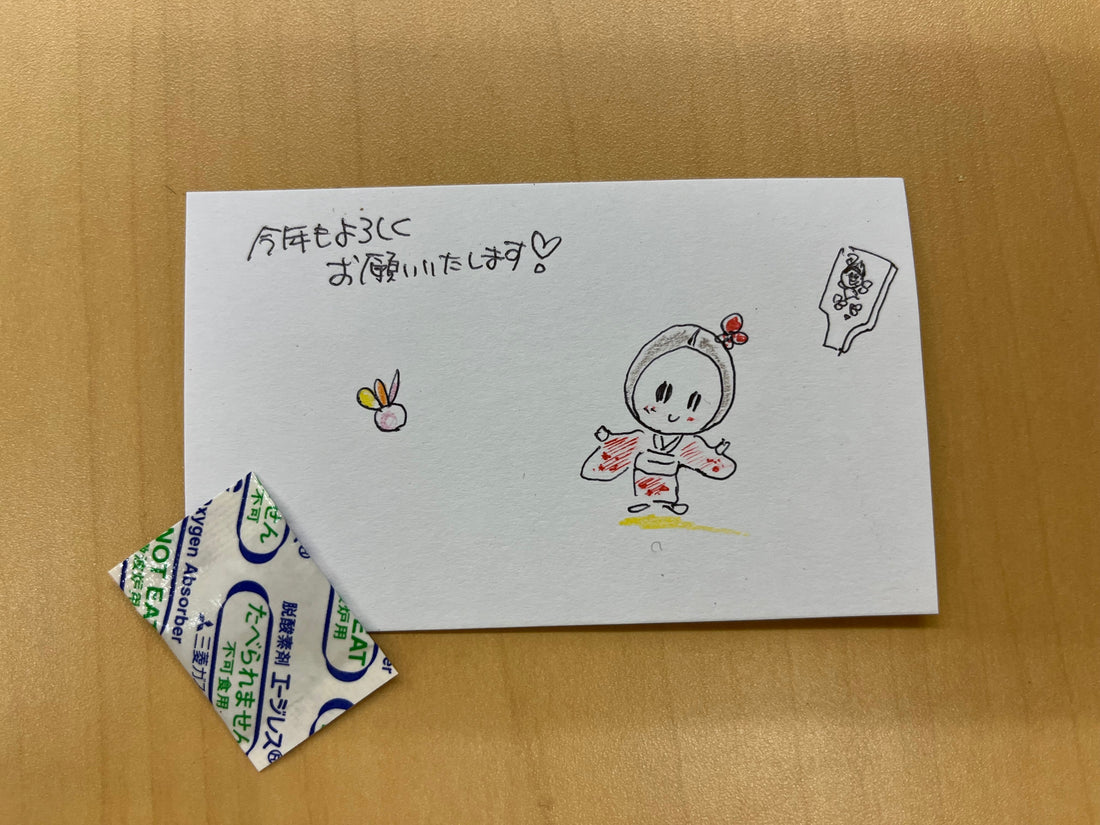 今年もよろしく
お願いいたします♡
せん
不可
NOT EA
xygen Absorber
三菱ガス
たべられません
不可食用
脱酸素剤 エージレス®
EAT
炉用
er